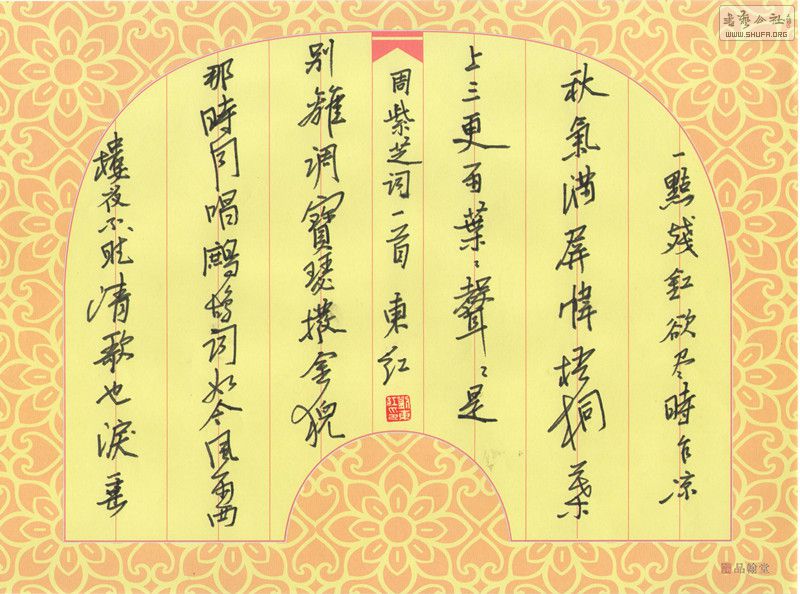 一點残釭欲尽時乍凉
秋氣满屏幃梧桐葉
上三更雨葉〻聲〻是
别離調寶瑟撥金猊
那時同唱鷓鴣词如今風雨西
樓夜不听清歌也淚垂
周紫芝词一首 東红
書藝公社
WWW.SHUFA.ORG
品翰堂